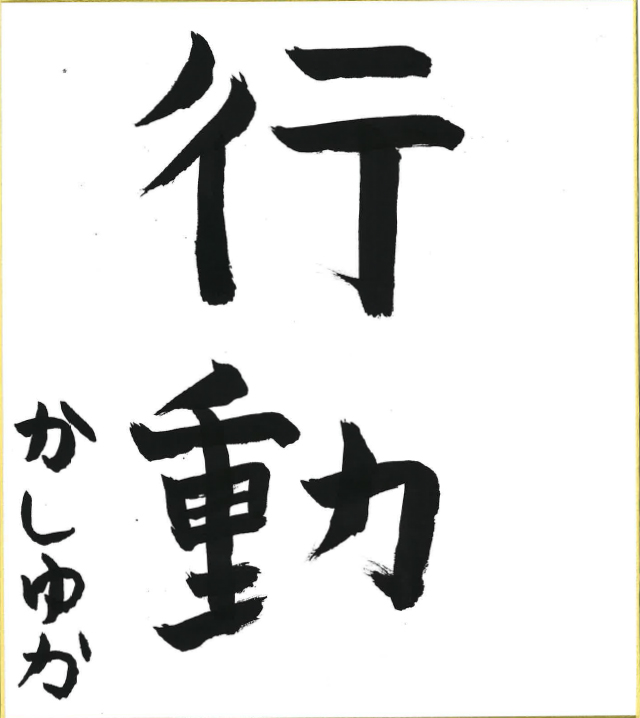 行動
かしゆか